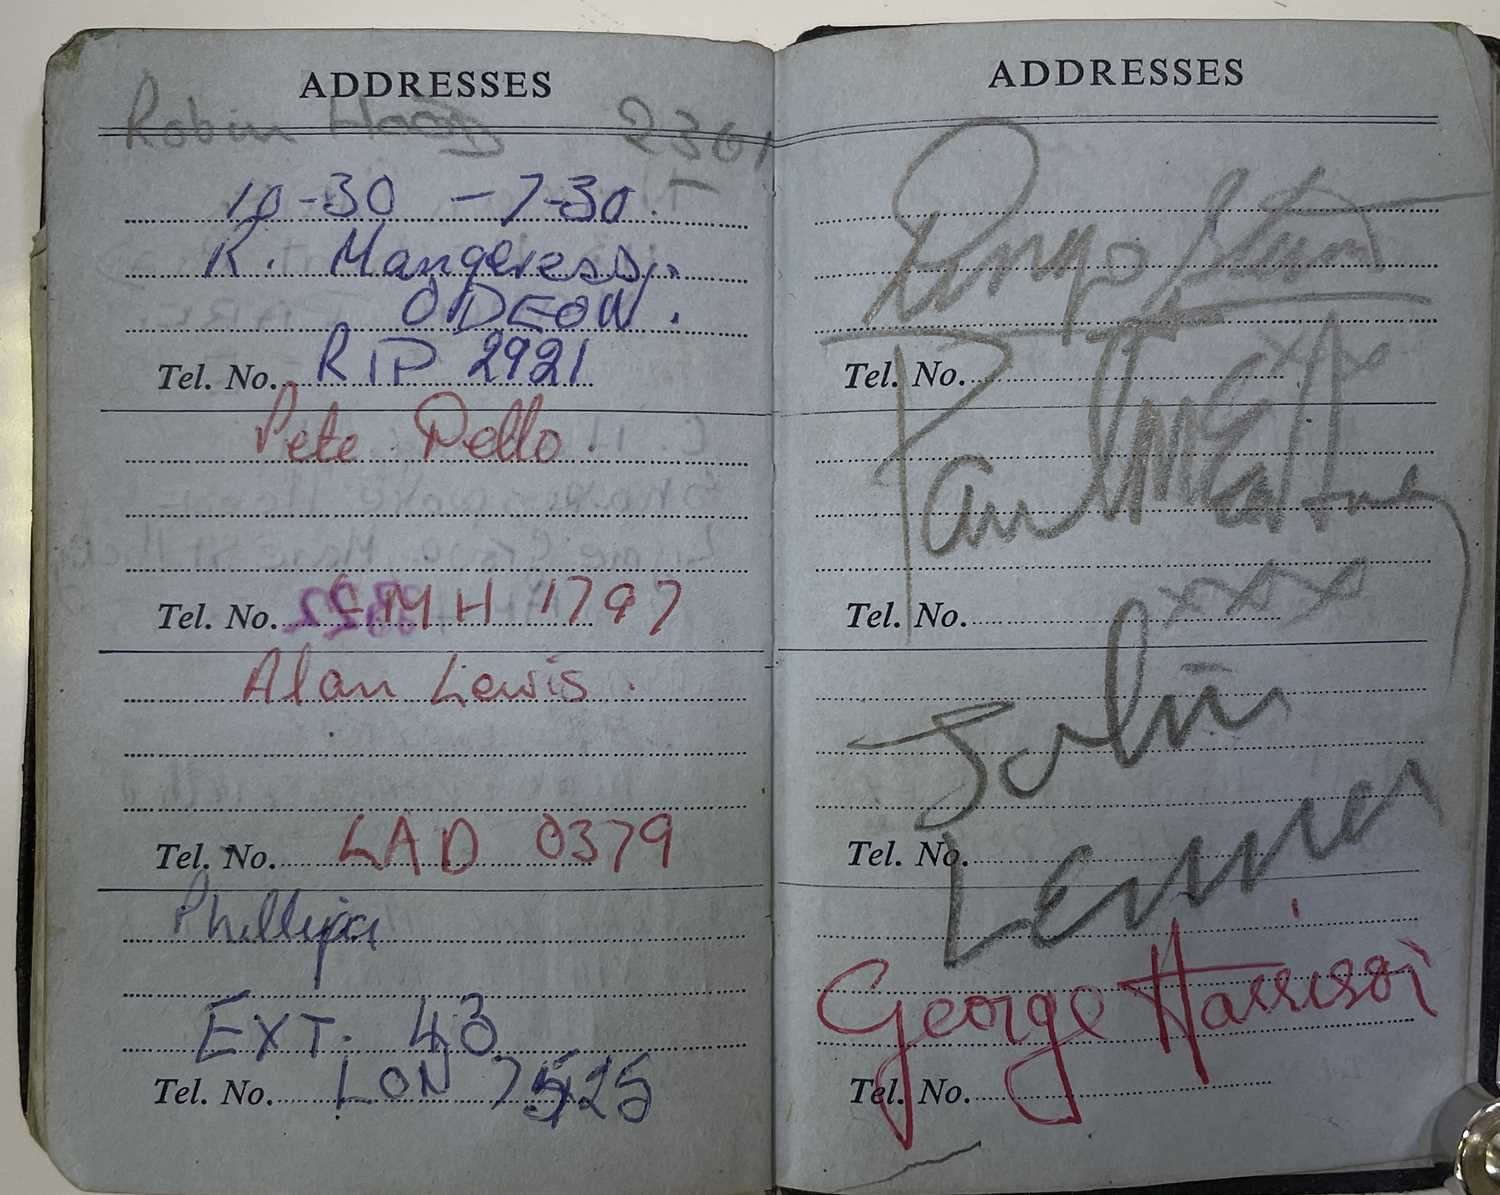 ADDRESSES
Robin Hood 2301
10-30 - 7-30.
R. Mangeressi.
ODEON.
Tel. No. RIP 2921
Pete Dello.
Tel. No. EMH 1797
Alan Lewis.
Tel. No. LAD 0379
Phillipa
EXT. 43
Tel. No. LON 7525
ADDRESSES
Ringo Starr
Tel. No.
xxx
Paul McCartney
Tel. No.
xxx
John
Tel. No.
Lennon
George Harrison
Tel. No.